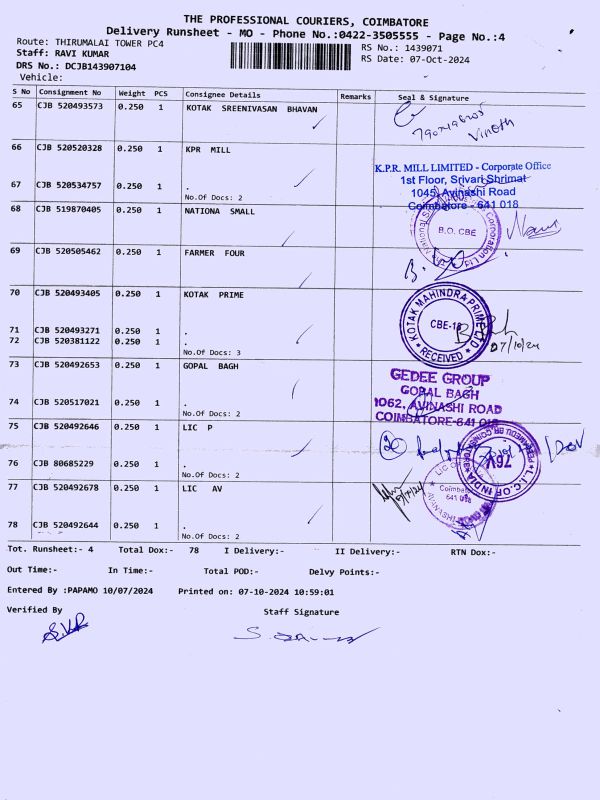 THE PROFESSIONAL COURIERS, COIMBATORE
Delivery Runsheet - MO - Phone No.:0422-3505555 - Page No.:4
Route: THIRUMALAI TOWER PC4
Staff: RAVI KUMAR
DRS No.: DCJB143907104
Vehicle:
RS No.: 1439071
RS Date: 07-Oct-2024
S No Consignment No Weight PCS Consignee Details Remarks Seal & Signature
65 CJB 520493573 0.250 1 KOTAK SREENIVASAN BHAVAN
Vinoth
66 CJB 520520328 0.250 1 KPR MILL
K.P.R. MILL LIMITED - Corporate Office
1st Floor, Srivari Shrimat
1045, Avinashi Road
Coimbatore - 641 018
67 CJB 520534757 0.250 1 .
No.Of Docs: 2
68 CJB 519870405 0.250 1 NATIONA SMALL
B.O. CBE
69 CJB 520505462 0.250 1 FARMER FOUR
70 CJB 520493405 0.250 1 KOTAK PRIME
KOTAK MAHINDRA PRIME LTD
CBE-18
RECEIVED
07/10/24
71 CJB 520493271 0.250 1 .
72 CJB 520381122 0.250 1 .
No.Of Docs: 3
73 CJB 520492653 0.250 1 GOPAL BAGH
GEDEE GROUP
GOPAL BAGH
1062, AVINASHI ROAD
COIMBATORE-641 018
74 CJB 520517021 0.250 1 .
No.Of Docs: 2
75 CJB 520492646 0.250 1 LIC P
L.I.C. OF INDIA
76L
76 CJB 80685229 0.250 1 .
No.Of Docs: 2
77 CJB 520492678 0.250 1 LIC AV
LIC OF
Coimbatore
641 018
78 CJB 520492644 0.250 1 .
No.Of Docs: 2
Tot. Runsheet:- 4 Total Dox:- 78 I Delivery:- II Delivery:- RTN Dox:-
Out Time:- In Time:- Total POD:- Delvy Points:-
Entered By :PAPAMO 10/07/2024 Printed on: 07-10-2024 10:59:01
Verified By Staff Signature